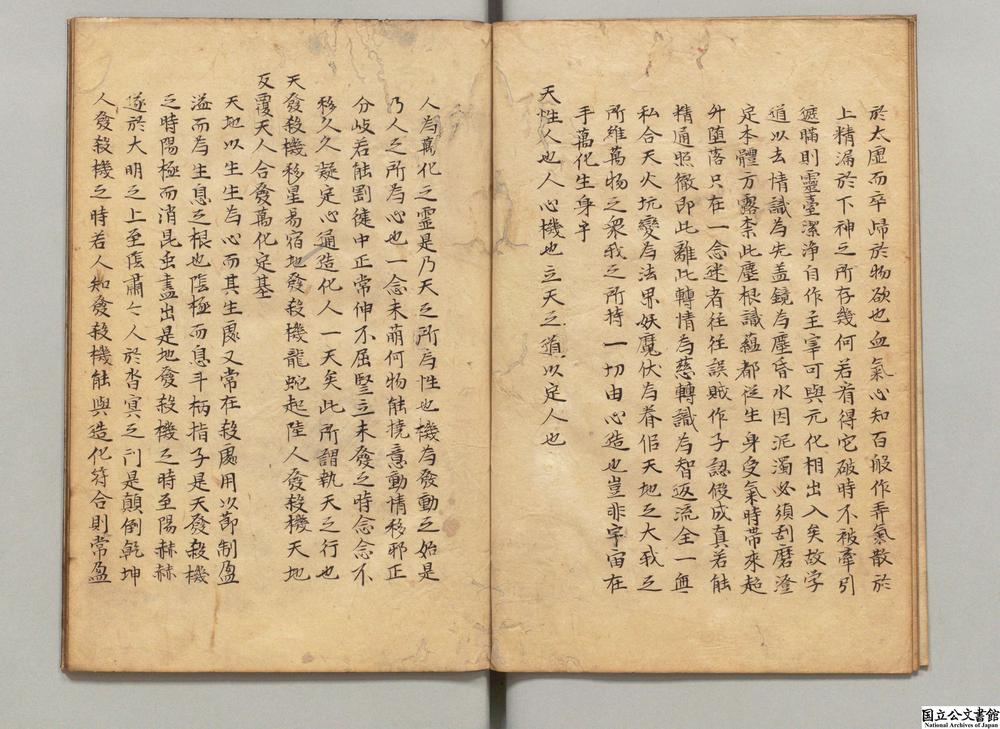 於太虛而卒歸於物欲也血氣心知百般作弄氣散於
上精漏於下神之所存幾何若肯得它破時不被牽引
遮瞞則靈臺潔淨自作主宰可與元化相出入矣故学
道以去情識為先盖鏡為塵昏水因泥濁必須刮磨澄
定本體方露柰此塵根識蘊都從生身受氣時帶來超
升墮落只在一念迷者往往誤賊作子認假成真若能
精通照徹即此離此轉情為慈轉識為智返流全一無
私合天火坑變為法界妖魔伏為眷侣天地之大我之
所維萬物之衆我之所持一切由心造也豈非宇宙在
手萬化生身乎
天性人也人心機也立天之道以定人也
人為萬化之靈是乃天之所為性也機為發動之始是
乃人之所為心也一念未萌何物能撓意動情移邪正
分岐若能劃徤中正常伸不屈堅立未發之時念念不
移久久凝定心通造化人一天矣此所謂執天之行也
天發殺機移星易宿地發殺機龍蛇起陸人發殺機天地
反覆天人合發萬化定基
天地以生生為心而其生處又常在殺處用以節制盈
溢而為生息之根也陰極而息斗柄指子是天發殺機
之時陽極而消昆虫盡出是地發殺機之時至陽赫赫
遂於大明之上至陰肅々人於杳冥之门是顛倒乾坤
人發殺機之時若人知發殺機能與造化符合則常盈
国立公文書館
National Archives of Japan